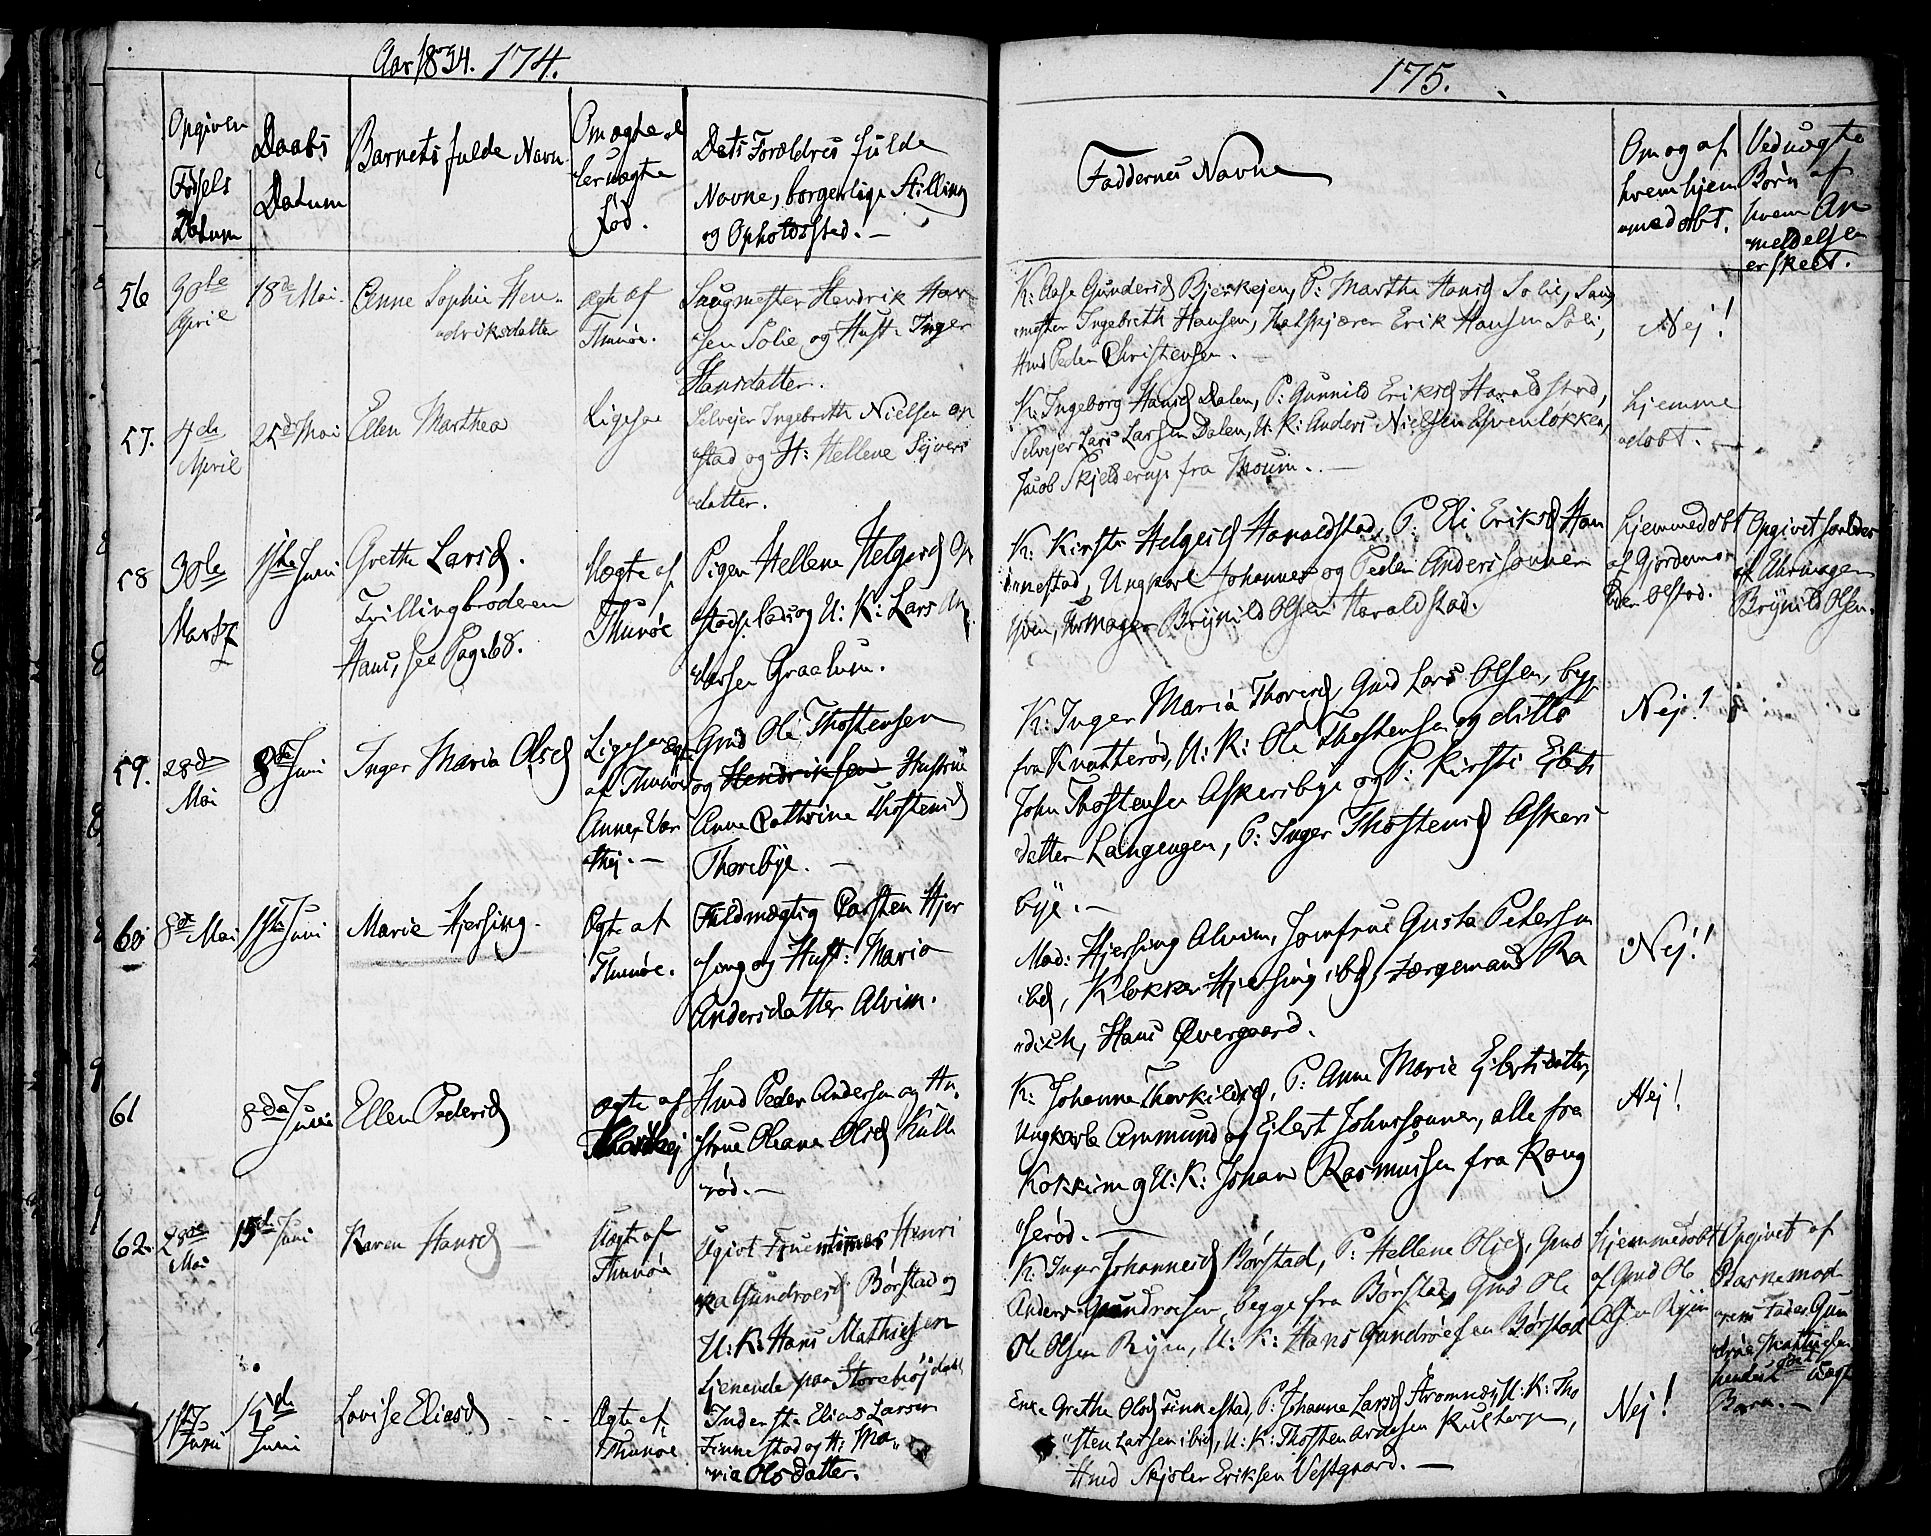 Aar 1834. 174.
Opgiven Fødsels Datum
Daabs Datum
Barnets fulde Navn
Om ægte el
ler uægte
fød.
Dets Forældres fulde
Navne, borgerlige Stilling
og Opholdsstad. —
56
30te
April
18de Mai.
Anne Sophie Hen-
driksdatter
ægte af
Thunøe.
Saugmester Hendrik Han
sen Solie og Hustr: Inger
Hansdatter.
57.
4de
April
25de Mai
Ellen Marthea
Ligesaa
Selvejer Ingebreth Nielsen Op
stad og H: Hellene Syvers
datter.
58
30te
Martz
1ste Juni
Grethe Larsd.
Trillingbroderen
Hans, see Pag: 68.
Uægte af
Thunøe
Pigen Hellene Helgesd Op
stadplads og U: K: Lars An
dersen Graalum.
59.
28de
Mai
8de Juni
Inger Maria Olsd
Ligesaa
af Thunøe
Annex Var
thej. —
Gmd Ole Thostensen
og Hendriksen Hustrue
Anne Cathrine Thostensd
Thorebye. —
60
8de Mai
1ste Juni
Marie Hjersing.
Ægte af
Thunøe.
Fuldmægtig Carsten Hjer
sing og Hust: Maria
Andersdatter Alvim.
61
8de Juni
Ellen Pedersd
ægte af
Hmd Peder Andersen og Hu
strue Oleana Olsd Kulle
rød. —
62.
28de
Mai
15de Juni
Karen Hansd
Uægte af
Thunøe
Ugivt Fruentimer Henri
ka Gundroesd Børstad og
U: K: Hans Mathiesen
tjenende paa Storehøj
1ste
Juni
15de
Juni
Lovise Eliasd
Ægte af
Thunøe
Inderste Elias Larsen
Finnestad og H: Ma-
ria Olsdatter.
175.
Faddernes Navne
Om og af
hvem hjem
medøbt.
Ved uægte
Børn af
hvem An
meldelsen
er skeet.
K: Aase Gundersd Bjerkejen, P: Marthe Hansd Solie, Saug
mester Ingebreth Hansen, Erik Hansen Soli,
Hmd Peder Christensen. —
Nej!
K: Ingeborg Hansd Dalen, P: Gunnild Eriksd Haraldstad,
Selvejer Lars Larsen Dalen, U: K: Anders Nielsen Svenløkken,
Jacob Skjelderup fra Thoum. —
hjemme
døbt. —
K: Kirsti Helgesd Haraldstad, P: Eli Eriksd Han
nestad, Ungkarl Johannes og Peder Anderssønner
Brynild Olsen Haraldstad.
hjemmedøbt
af Gjordemor
Olstad.
Opgivet
Brynild Olsen.
K: Inger Maria Thoresd, Gmd Lars Olsen, begge
fra Knatterød, U: K: Ole Thostensen og ditto
John Thostensen Askeribye og P: Kirsti Ejlerts
datter Langengen, P: Inger Thostensd Askeri
bye. —
Nej!
Mad: Hjersing Alvim, Jomfrue Gusta Petersen
ibd, Klokker Hjersing ibd, Færgemand Ra
disch, Hans Øvergaard.
Nej!
K: Johanne Thorkildsd, P: Anne Marie Ejlertsdatter,
Ungkarle Ammund og Ejlert Johnssønner, alle fra
Kokkim og U: K: Johan Rasmussen fra Roug
serød. —
Nej!
K: Inger Johannesd Børstad, P: Hellene Olsd, Gmd
Anders Gundroesen, begge fra Børstad, Gmd Ole
Ole Olsen Ryen, U: K: Hans Gundrøesen Børstad
hjemmedøbt
af Gmd Ole
Olsen Ryen
Opgivet af
Barnemod
rens Fader Gun
drøe Mathiesen
Barn. —
Grethe Olsd Finnestad, P: Johanne Larsd Strømnæs, U: K: Tho
sten Larsen ibd, U: K: Thosten Arnesen Kultorp,
Hmd Skjøler Eriksen Vestgaard. —
Nej!